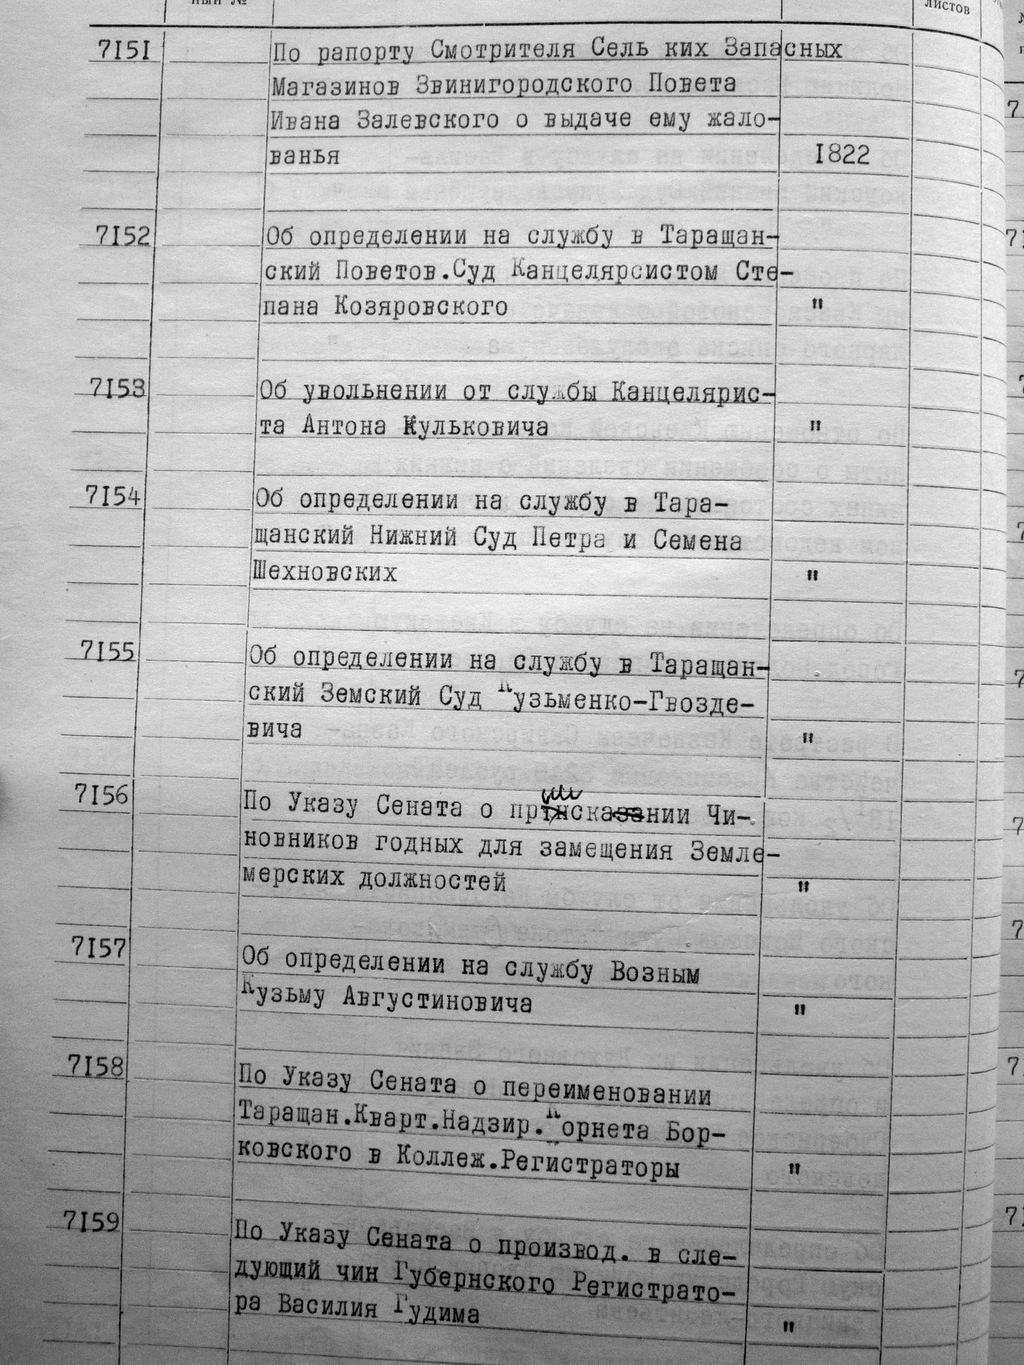 листов
7151 По рапорту Смотрителя Сель ких Запасных
Магазинов Звинигородского Повета
Ивана Залевского о выдаче ему жало-
ванья 1822
7152 Об определении на службу в Таращан-
ский Поветов.Суд Канцелярсистом Сте-
пана Козяровского "
7153 Об увольнении от службы Канцелярис-
та Антона Кульковича "
7154 Об определении на службу в Тара-
щанский Нижний Суд Петра и Семена
Шехновских "
7155 Об определении на службу в Таращан-
ский Земский Суд Кузьменко-Гвозде-
вича "
7156 По Указу Сената о приискании Чи-
новников годных для замещения Земле-
мерских должностей "
7157 Об определении на службу Возным
Кузьму Августиновича "
7158 По Указу Сената о переименовании
Таращан.Кварт.Надзир.Корнета Бор-
ковского в Коллеж.Регистраторы "
7159 По Указу Сената о производ. в сле-
дующий чин Губернского Регистрато-
ра Василия Гудима "